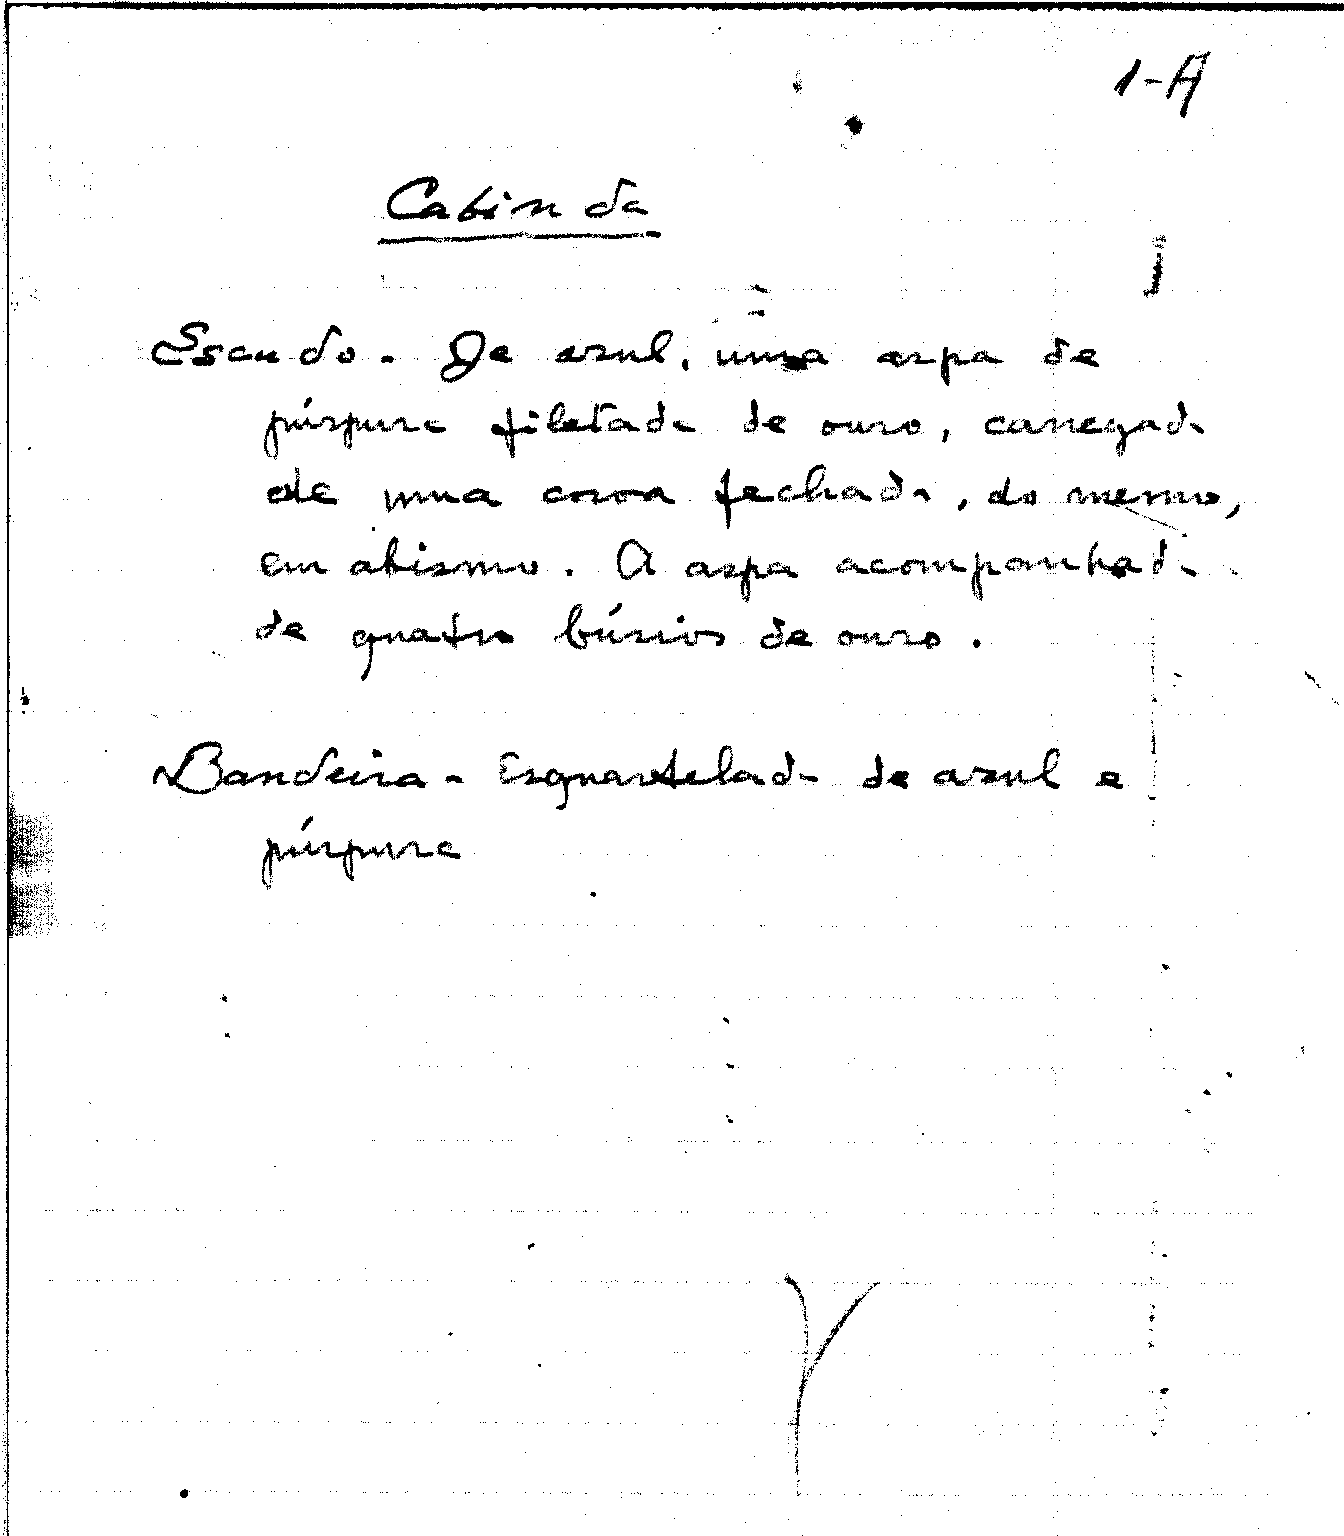 1-A
Cabinda
Escudo - De azul, uma aspa de
púrpura filetada de ouro, carregada
de uma coroa fechada, do mesmo,
em abismo. A aspa acompanhada
de quatro búzios de ouro.
Bandeira - Esquartelada de azul e
púrpura